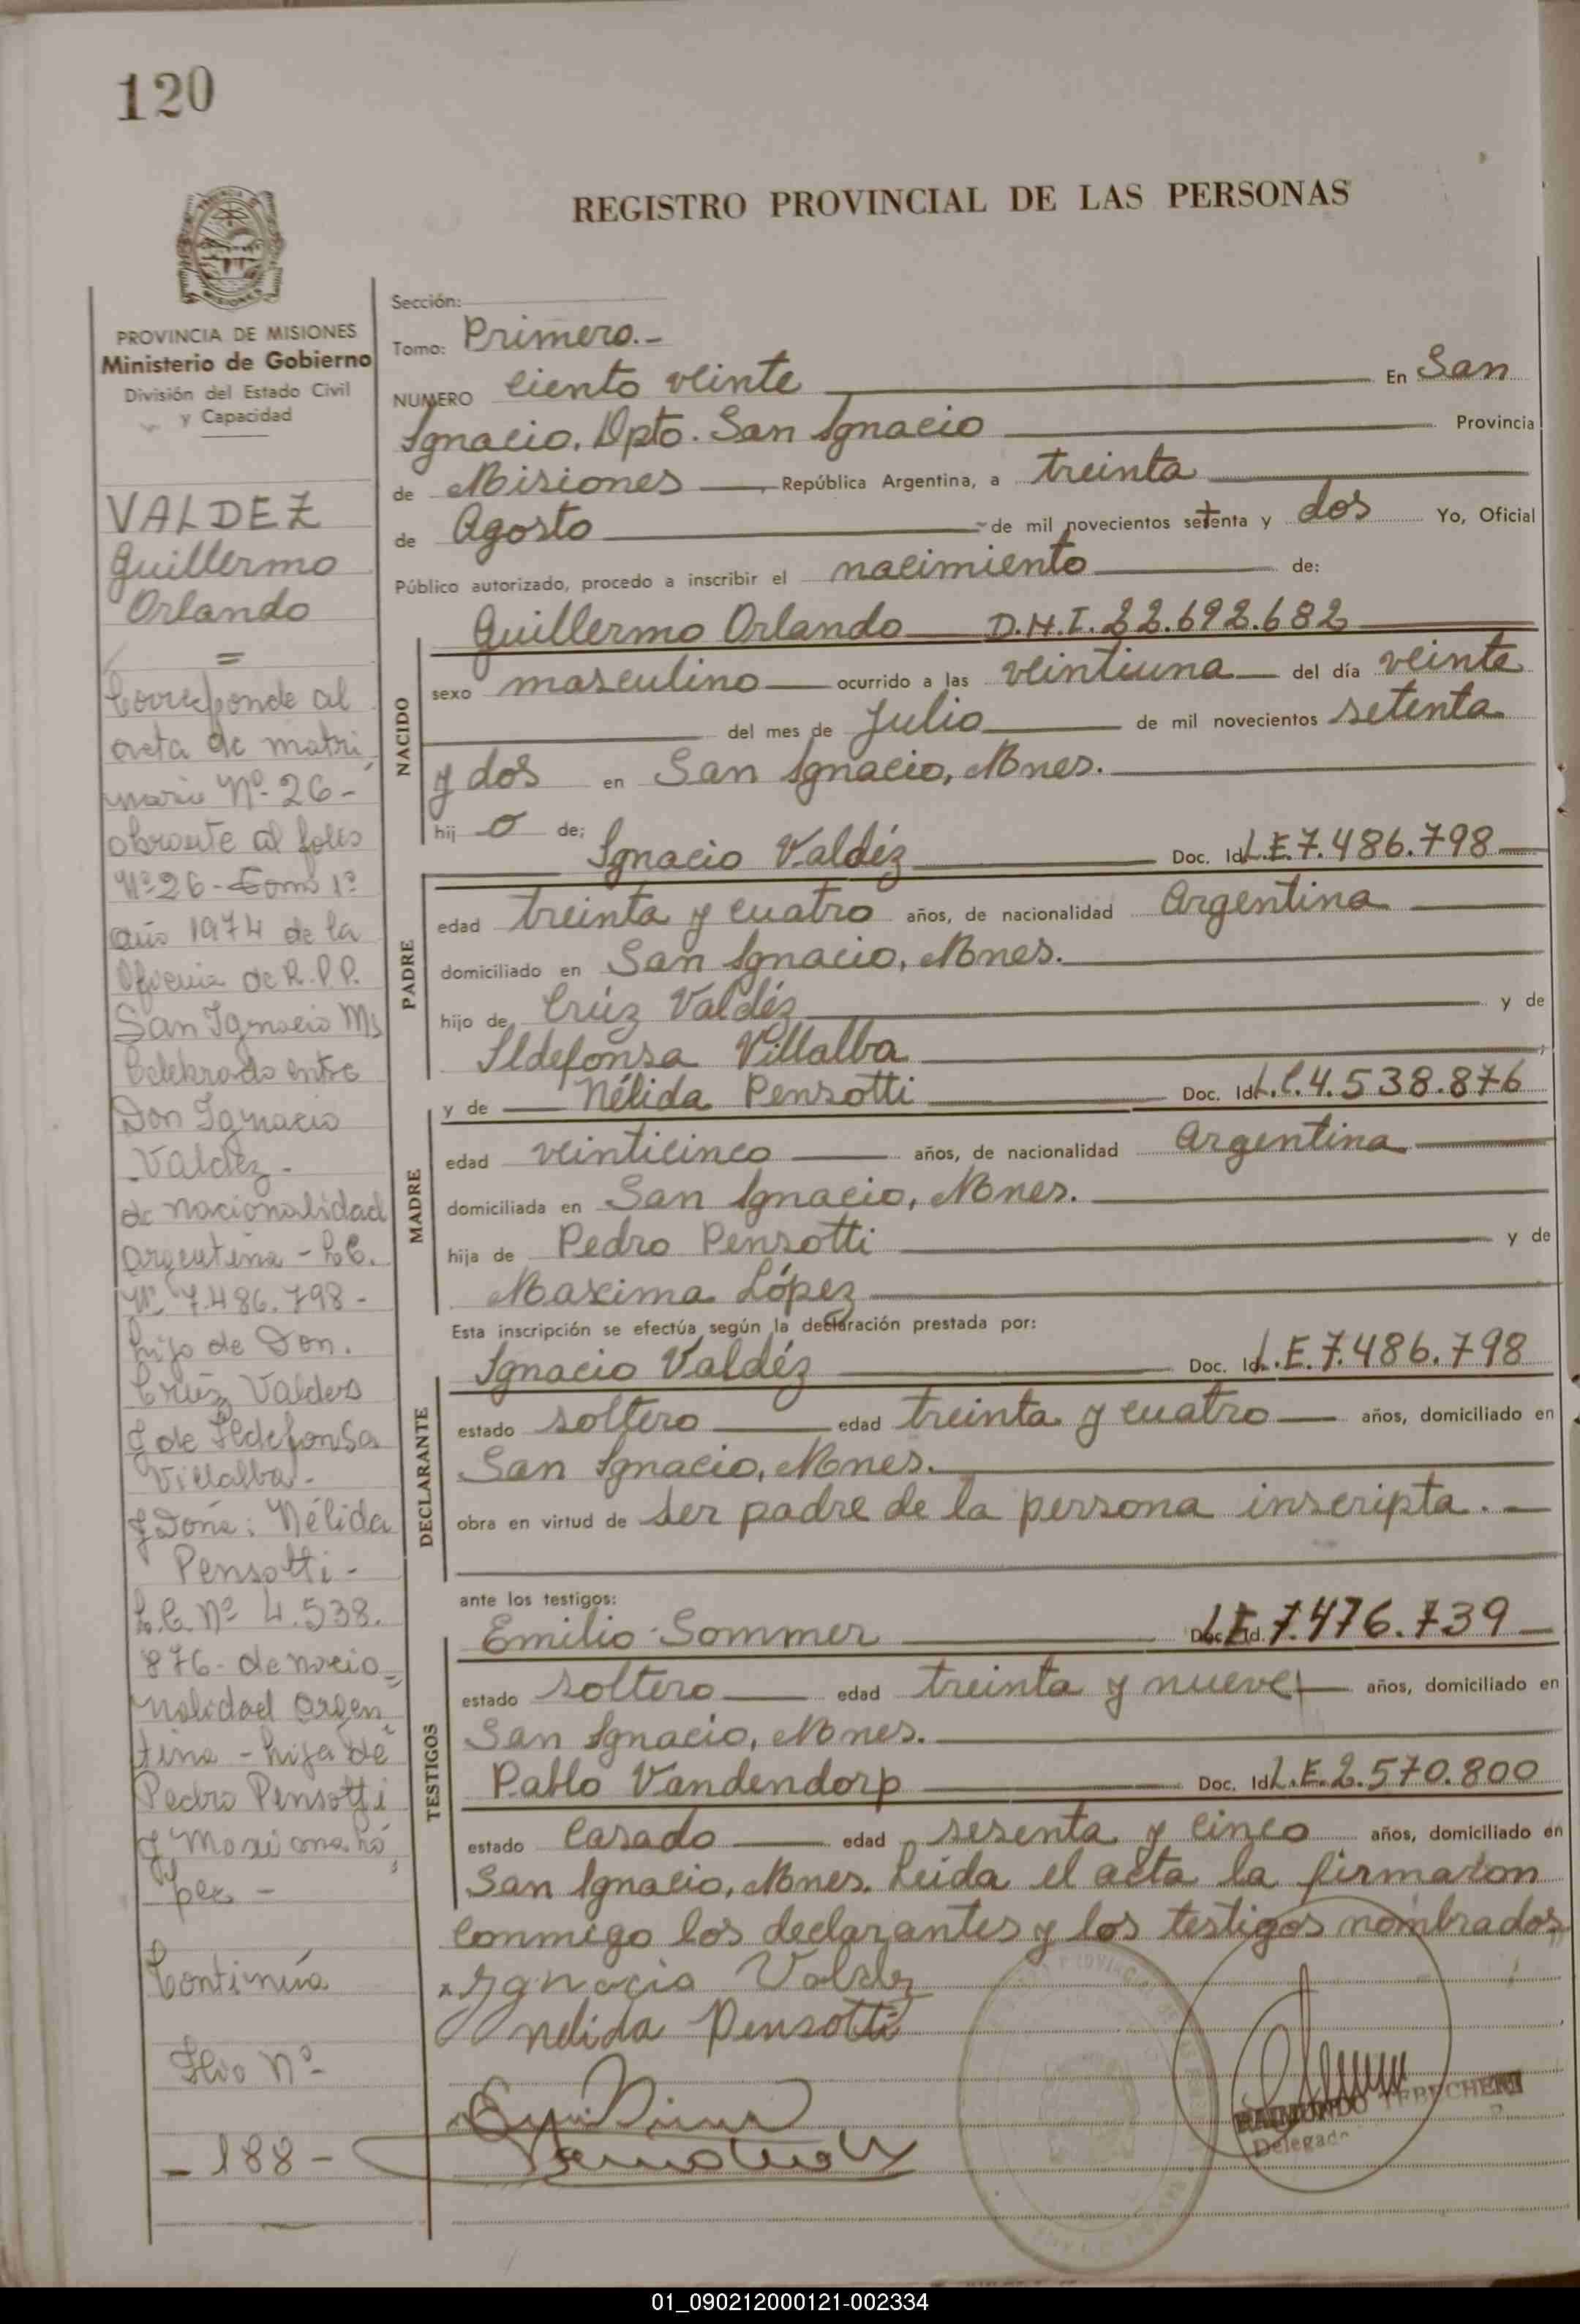 120
REGISTRO PROVINCIAL DE LAS PERSONAS
MISIONES
PROVINCIA DE MISIONES
Ministerio de Gobierno
División del Estado Civil
y Capacidad
VALDEZ
Guillermo
Orlando
=
Corresponde al
acta de matri
monio Nº 26-
obrante al folio
Nº 26 - Tomo 1º
año 1974 de la
Oficina de R.P.P.
San Ignacio Ms
Celebrado entre
Don Ignacio
Valdez -
de nacionalidad
argentina -
Nº 7.486.798 -
hijo de Don.
Crúz Valdes
y de Ildefonsa
Villalba -
y Doña: Nélida
Pensotti -
L.C. Nº 4.538.
876 - de nacio
nalidad argen
tina - hija de
Pedro Pensotti
y Maxima Ló
pez -
Continúa
Flio Nº
- 188 -
Sección:
Tomo: Primero.-
NUMERO Ciento veinte En San
Ignacio, Dpto. San Ignacio Provincia
de Misiones, República Argentina, a treinta
de Agosto de mil novecientos setenta y dos Yo, Oficial
Público autorizado, procedo a inscribir el nacimiento de:
NACIDO
Guillermo Orlando D.N.I. 22.692.682
sexo masculino ocurrido a las veintiuna del día veinte
del mes de Julio de mil novecientos setenta
y dos en San Ignacio, Mnes.
hij o de; Ignacio Valdéz Doc. Id. L.E. 7.486.798
PADRE
edad treinta y cuatro años, de nacionalidad Argentina
domiciliado en San Ignacio, Mnes.
hijo de Crúz Valdéz y de
Ildefonsa Villalba
y de Nélida Pensotti Doc. Id. L.C. 4.538.876
MADRE
edad veinticinco años, de nacionalidad Argentina
domiciliada en San Ignacio, Mnes.
hija de Pedro Pensotti y de
Maxima López
Esta inscripción se efectúa según la declaración prestada por:
DECLARANTE
Ignacio Valdéz Doc. Id. L.E. 7.486.798
estado soltero edad treinta y cuatro años, domiciliado en
San Ignacio, Mnes.
obra en virtud de ser padre de la persona inscripta.-
ante los testigos:
TESTIGOS
Emilio Sommer Doc. Id. L.E. 7.476.739
estado soltero edad treinta y nueve años, domiciliado en
San Ignacio, Mnes.
Pablo Vandendorp Doc. Id. L.E. 2.570.800
estado casado edad sesenta y cinco años, domiciliado en
San Ignacio, Mnes. Leida el acta la firmaron
conmigo los declarantes y los testigos nombrados
Ignacio Valdez
Nelida Pensotti
RAIMUNDO
Delegado
01_090212000121-002334